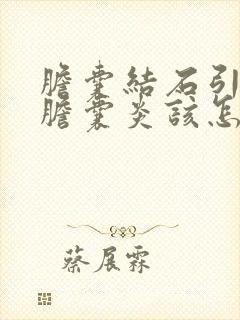 膽囊結石引
膽囊炎該怎
蔡展霖